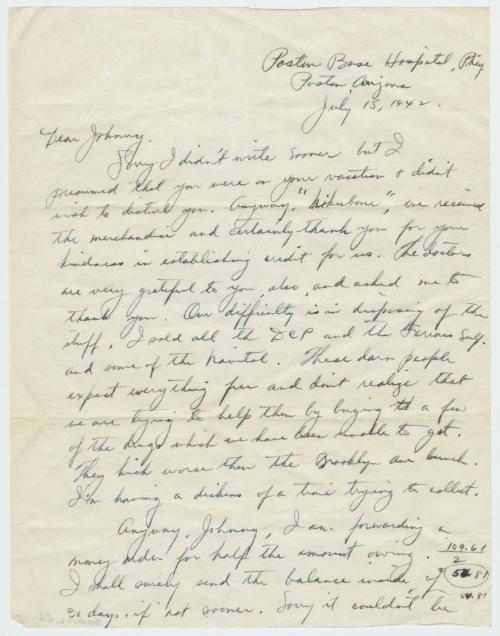 Poston Base Hospital, Phcy.
Poston, Arizona
July 15, 1942.
Dear Johnny,
Sorry I didn't write sooner but I
presumed that you were on your vacation & didn't
wish to disturb you. Anyway, we received
the merchandise and certainly thank you for your
kindness in establishing credit for us. The doctors
are very grateful to you, also, and asked me to
thank you. Our difficulty is in disposing of the
stuff. I sold all the DCP and the Ferrous Sulf.
and some of the Navitol. These darn people
expect everything free and don't realize that
we are trying to help them by buying a few
of the drugs which we have been unable to get.
They kick worse then the Brooklyn Ave bunch.
I'm having a dickens of a time trying to collect.
Anyway, Johnny, I am forwarding a
money order for half the amount owing.
109.61
2
I shall surely send the balance inside of
54.81
54.81
30 days, if not sooner. Sorry it couldn't be